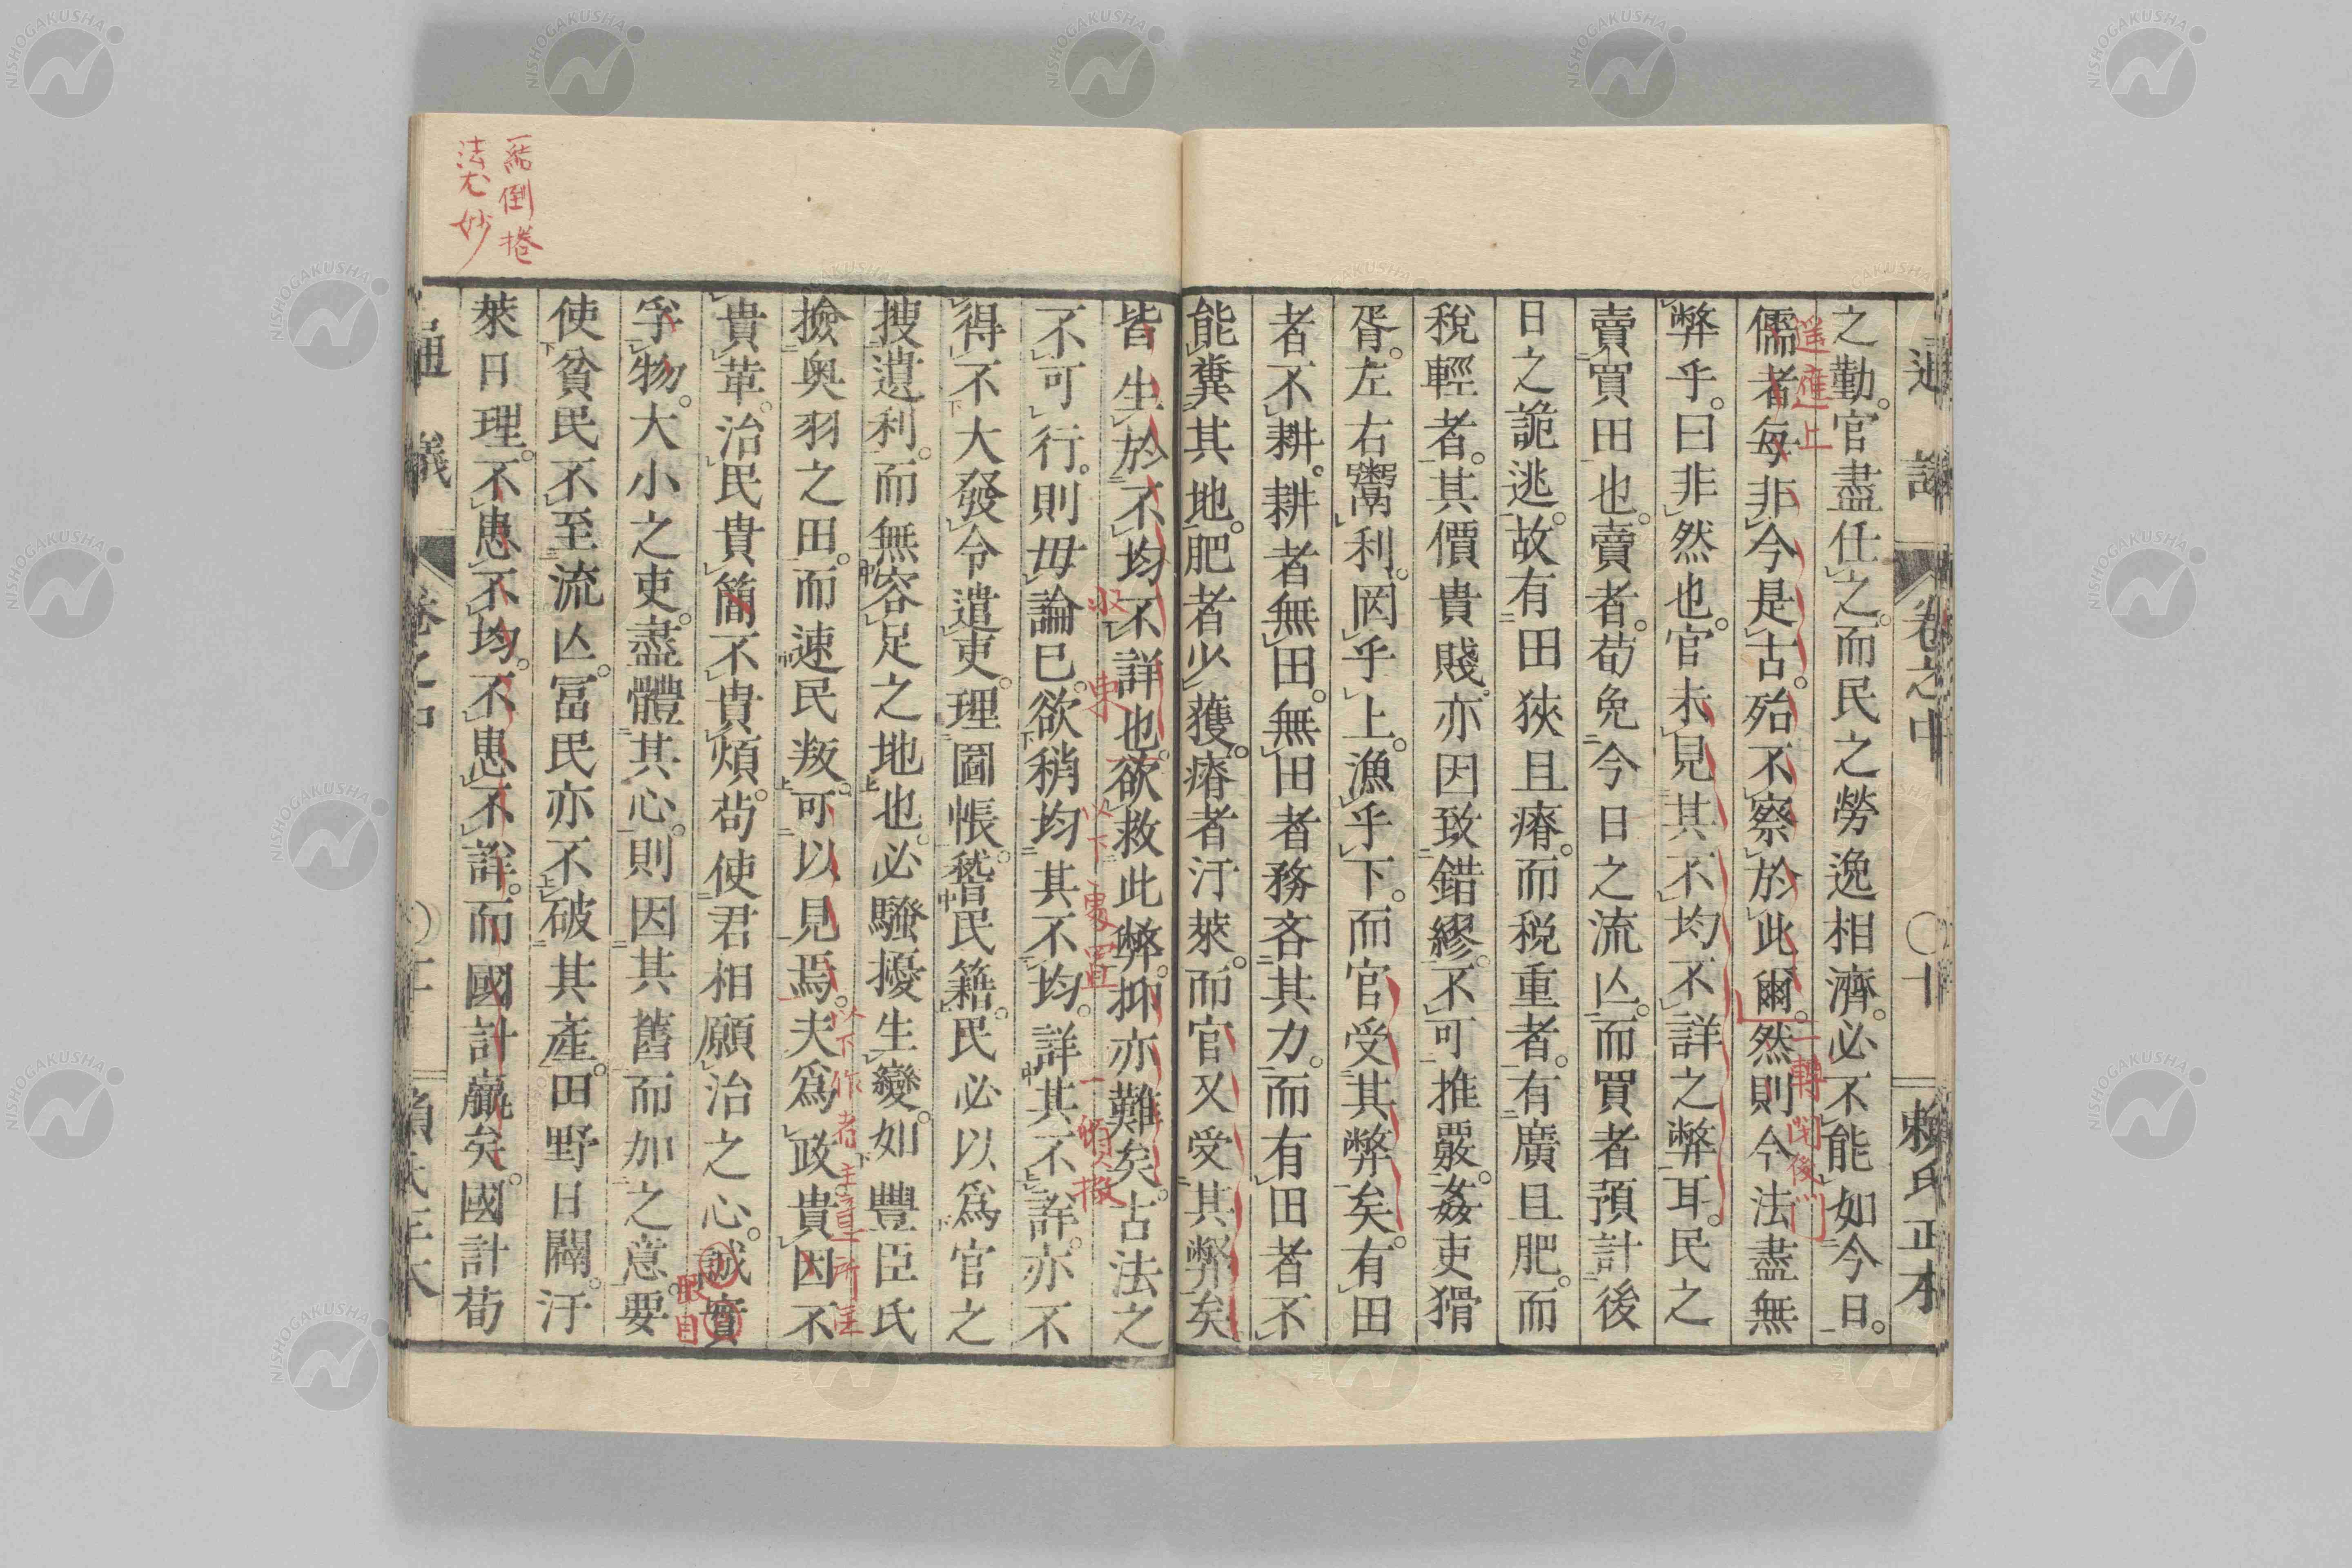 通議
卷之中
〇十
賴氏正本
之勤。官盡仕之。而民之勞逸相濟。必不能如今日。
儒者每非今是古。殆不察於此爾。然則今法盡無
弊乎。曰非然也。官未見其不均不詳之弊耳。民之
賣買田也。賣者。苟免今日之流亾。而買者預計後
日之詭逃。故有田狹且瘠。而税重者。有廣且肥。而
稅輕者。其價貴賤。亦因致錯繆。不可推覈。姦吏猾
胥。左右鬻利。罔乎上。漁乎下。而官受其弊矣。有田
者不耕。耕者無田。無田者務吝其力。而有田者不
能糞其地。肥者少獲。瘠者汙萊。而官又受其弊矣
遥進上
一轉開後門
皆生於不均不詳也。欲救此弊。抑亦難矣。古法之
不可行。則毋論已。欲稍均其不均。詳其不詳。亦不
得不大發令遣吏。理圖帳。稽民籍。民必以爲官之
搜遺利。而無容足之地也。必騷擾生變。如豐臣氏
撿奥羽之田。而速民叛。可以見焉。夫爲政貴因不
貴革。治民貴簡不貴煩。苟使君相願治之心。誠實
孚物。大小之吏。盡體其心。則因其舊而加之意。要
使貧民不至流亾。冨民亦不破其產。田野日闢。汙
萊日理。不患不均。不患不詳。而國計贏矣。國計苟
收束
以下更置
以下作者主
眼目
一結倒捲
法尤妙
通議
卷之中